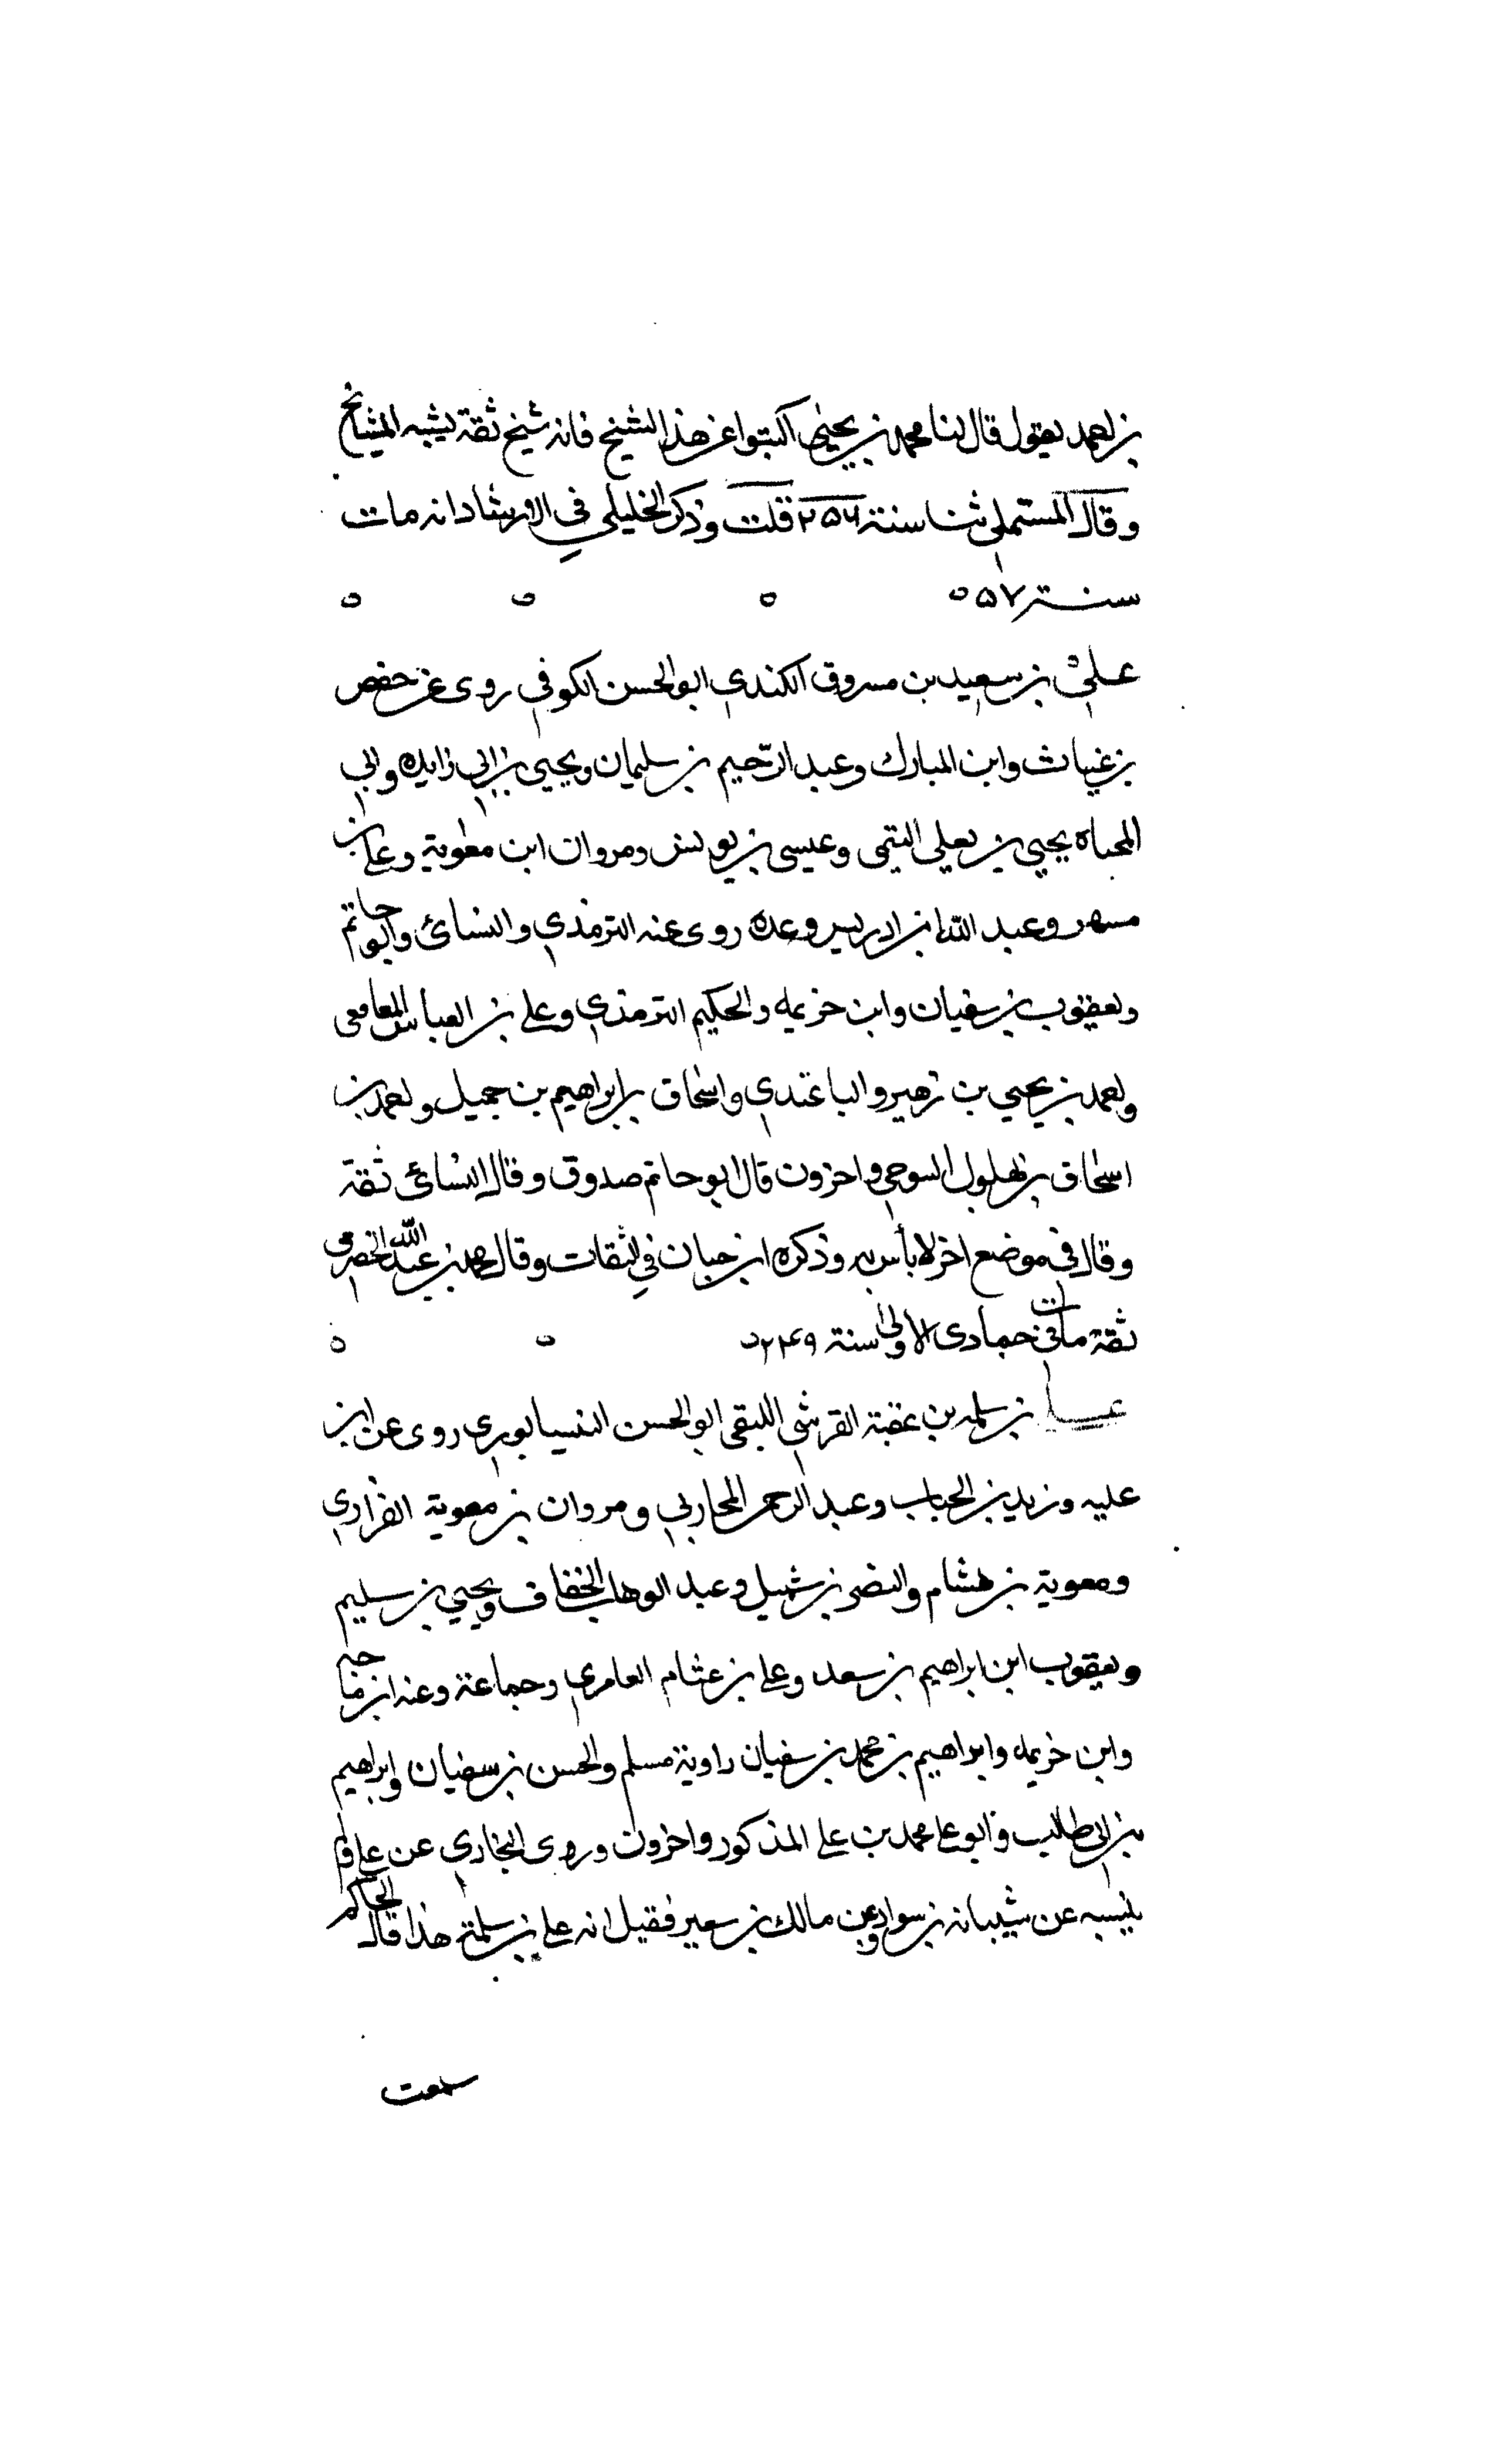 بن احمد يقول قال لنا محمد بن يحيى اكتبوا عن هذا الشيخ فانه شيخ ثقة يشبه المشائخ
وقال المستملى ثنا سنة ٢٥٦ قلت وذكر الخليلي في الارشاد انه مات
سنة ٥٧
علي بن سعيد بن مسروق الكندي ابو الحسن الكوفي روى عن حفص
بن غياث وابن المبارك وعبد الرحيم بن سليمان ويحيى بن ابي زايده وابي
المحياة يحيى بن يعلي التيمى وعيسى بن يونس ومروان ابن معوية وعلى بن
مسهر وعبد الله بن ادريس وعده روى عنه الترمذي والنسائ وابو حاتم
ويعقوب بن سفيان وابن خزيمه والحكيم الترمذي وعلي بن العباس المقامعى
واحمد بن يحيى بن زهير والباغندي واسحاق بن ابراهيم بن جميل واحمد بن
اسحاق بن بهلول السوحي واخرون قال ابو حاتم صدوق وقال النسائى ثقة
وقال في موضع اخر لا باس به وذكره ابن حبان في الثقات وقال محمد بن عبد الله الحضرمى
ثقة مات في جمادى الاولى سنة ٢٤٩
علي بن سلمه بن عقبة القرشي اللبقى ابو الحسن النيسابوري روى عن ابن
عليه وزيد بن الحباب وعبد الرحمن المحاربي ومروان بن معوية الفزاري
ومعوية بن هشام والنضر بن شميل وعبد الوهاب الخفاف ويحيى بن سليم
ويعقوب ابن ابراهيم بن سعد وعلي بن عثام العامري وجماعة وعنه ابن ماجه
وابن خزيمه وابراهيم بن محمد بن سفيان راوية مسلم والحسن بن سفيان وابراهيم
بن ابي طالب وابو على محمد بن علي المذكور واخرون وروى البخاري عن علي ولم
ينسبه عن شبابه بن سوار وعن مالك بن سعير فقيل انه علي بن سلمة هذا قال الحاكم
سمعت